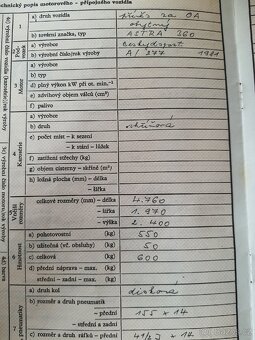 Technický popis motorového – přípojného vozidla
a) druh vozidla přívěs za OA
obytný
b) tovární značka, typ ASTRA 360
a) výrobce Beskydsport
b) výrobní číslo/rok výroby A/ 277 1981
a) výrobce
b) typ
d) plný výkon kW při ot. min.⁻¹
e) zdvihový objem válců (cm³)
f) palivo
a) výrobce
b) druh skříňová
e) počet míst – k sezení
– k stání – lůžek
f) zatížení střechy (kg)
g) objem cisterny – skříně (m³)
h) ložná plocha (mm) – délka
– šířka
celkové rozměry (mm) – délka 4.760
– šířka 1.970
– výška 2.400
a) pohotovostní 550
b) užitečná (vč. obsluhy) 50
c) celková 600
přední náprava – max. (kg)
střední – zadní – max. (kg)
a) druh kol disková
b) rozměr a druh pneumatik
– přední 155 x 14
– střední a zadní
c) rozměr a druh ráfků – přední